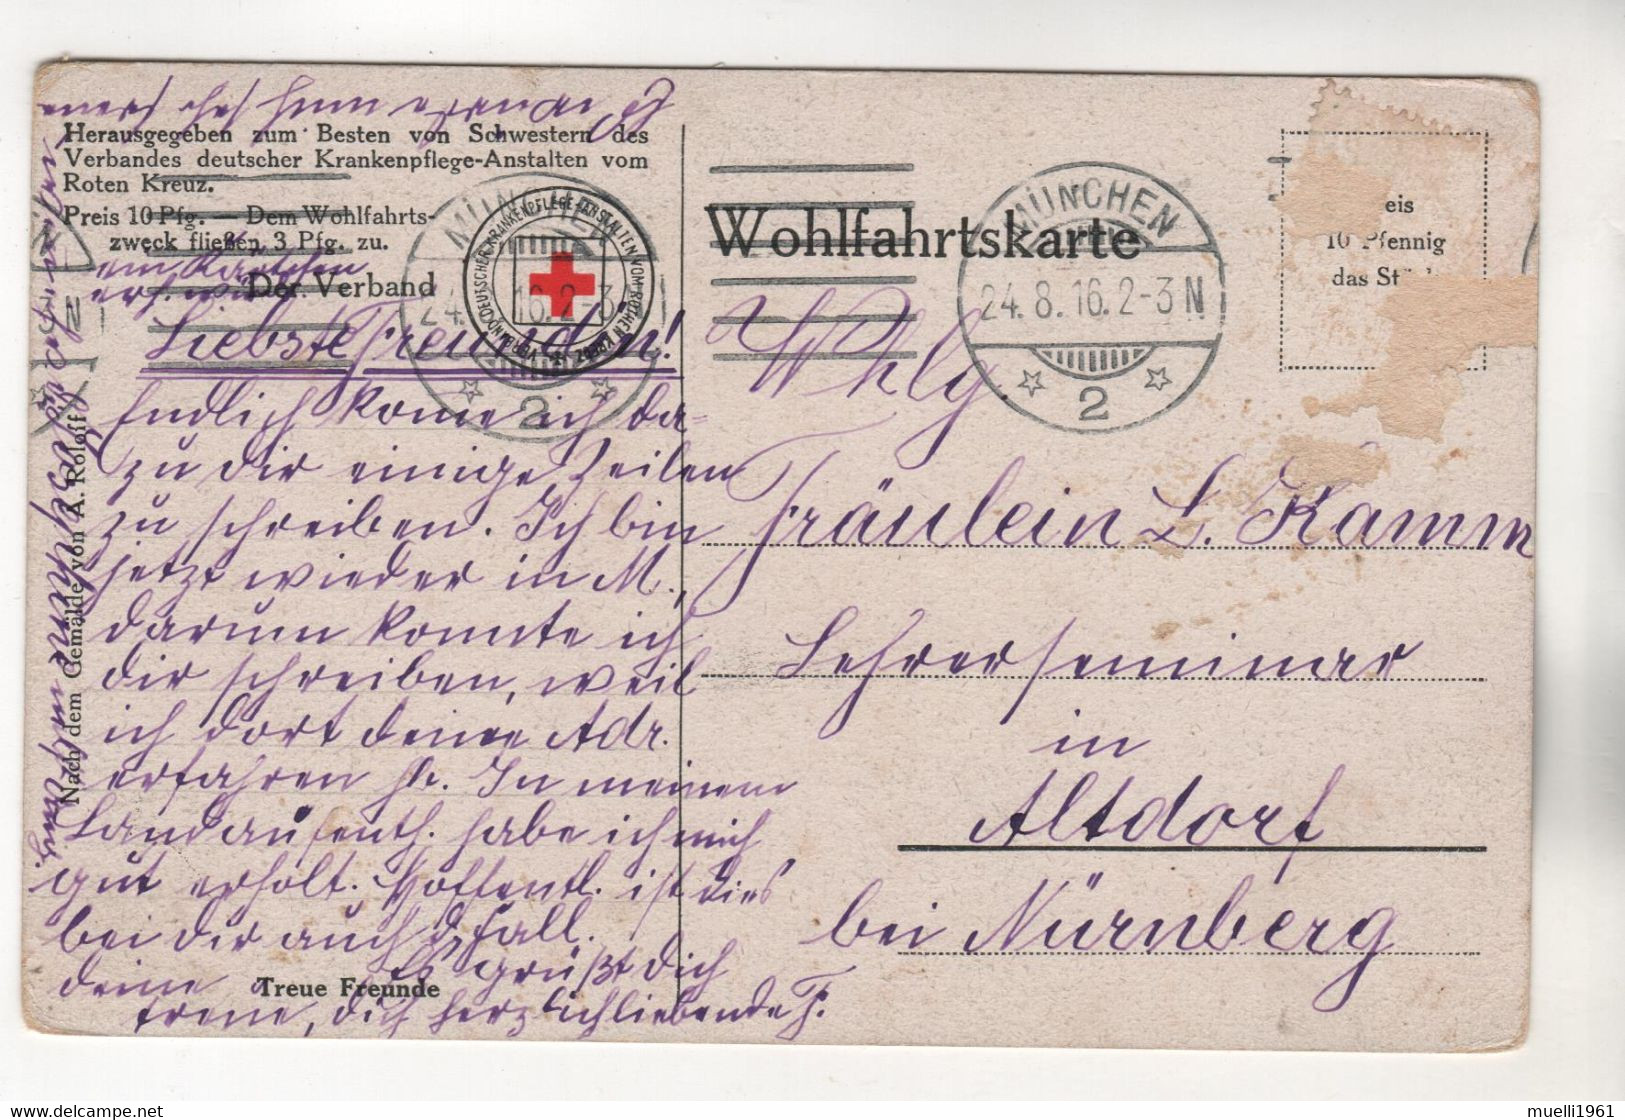 Herausgegeben zum Besten von Schwestern des
Verbandes deutscher Krankenpflege-Anstalten vom
Roten Kreuz.
Preis 10 Pfg. — Dem Wohlfahrts-
zweck fließen 3 Pfg. zu.
Der Verband
VERBAND DEUTSCHER KRANKENPFLEGE-ANSTALTEN VOM ROTHEN KREUZ
Liebste Freundin!
Endlich kome ich da=
zu dir einige Zeilen
zu schreiben. Ich bin
jetzt wieder in M.,
darum konnte ich
dir schreiben, weil
ich dort deine Adr.
erfahren hb. In meinem
Landaufenth. habe ich mich
gut erholt. Hoffentl. ist dies
bei dir auch d. Fall.
Es grüßt dich
deine
treue, dich herzlich liebende F.
Treue Freunde
Nach dem Gemälde von A. Roloff
Wohlfahrtskarte
MÜNCHEN
24.8.16.2-3 N
2
eis
10 Pfennig
das St
Whlg.
Fräulein L. Kamm
Lehrerseminar
in
Altdorf
bei Nürnberg
muelli1961